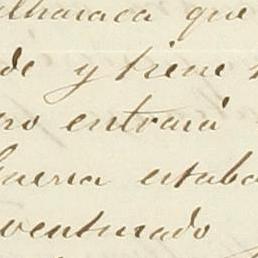 alharaca que
de y tiene
no entrará
fuerza estaba
venturado